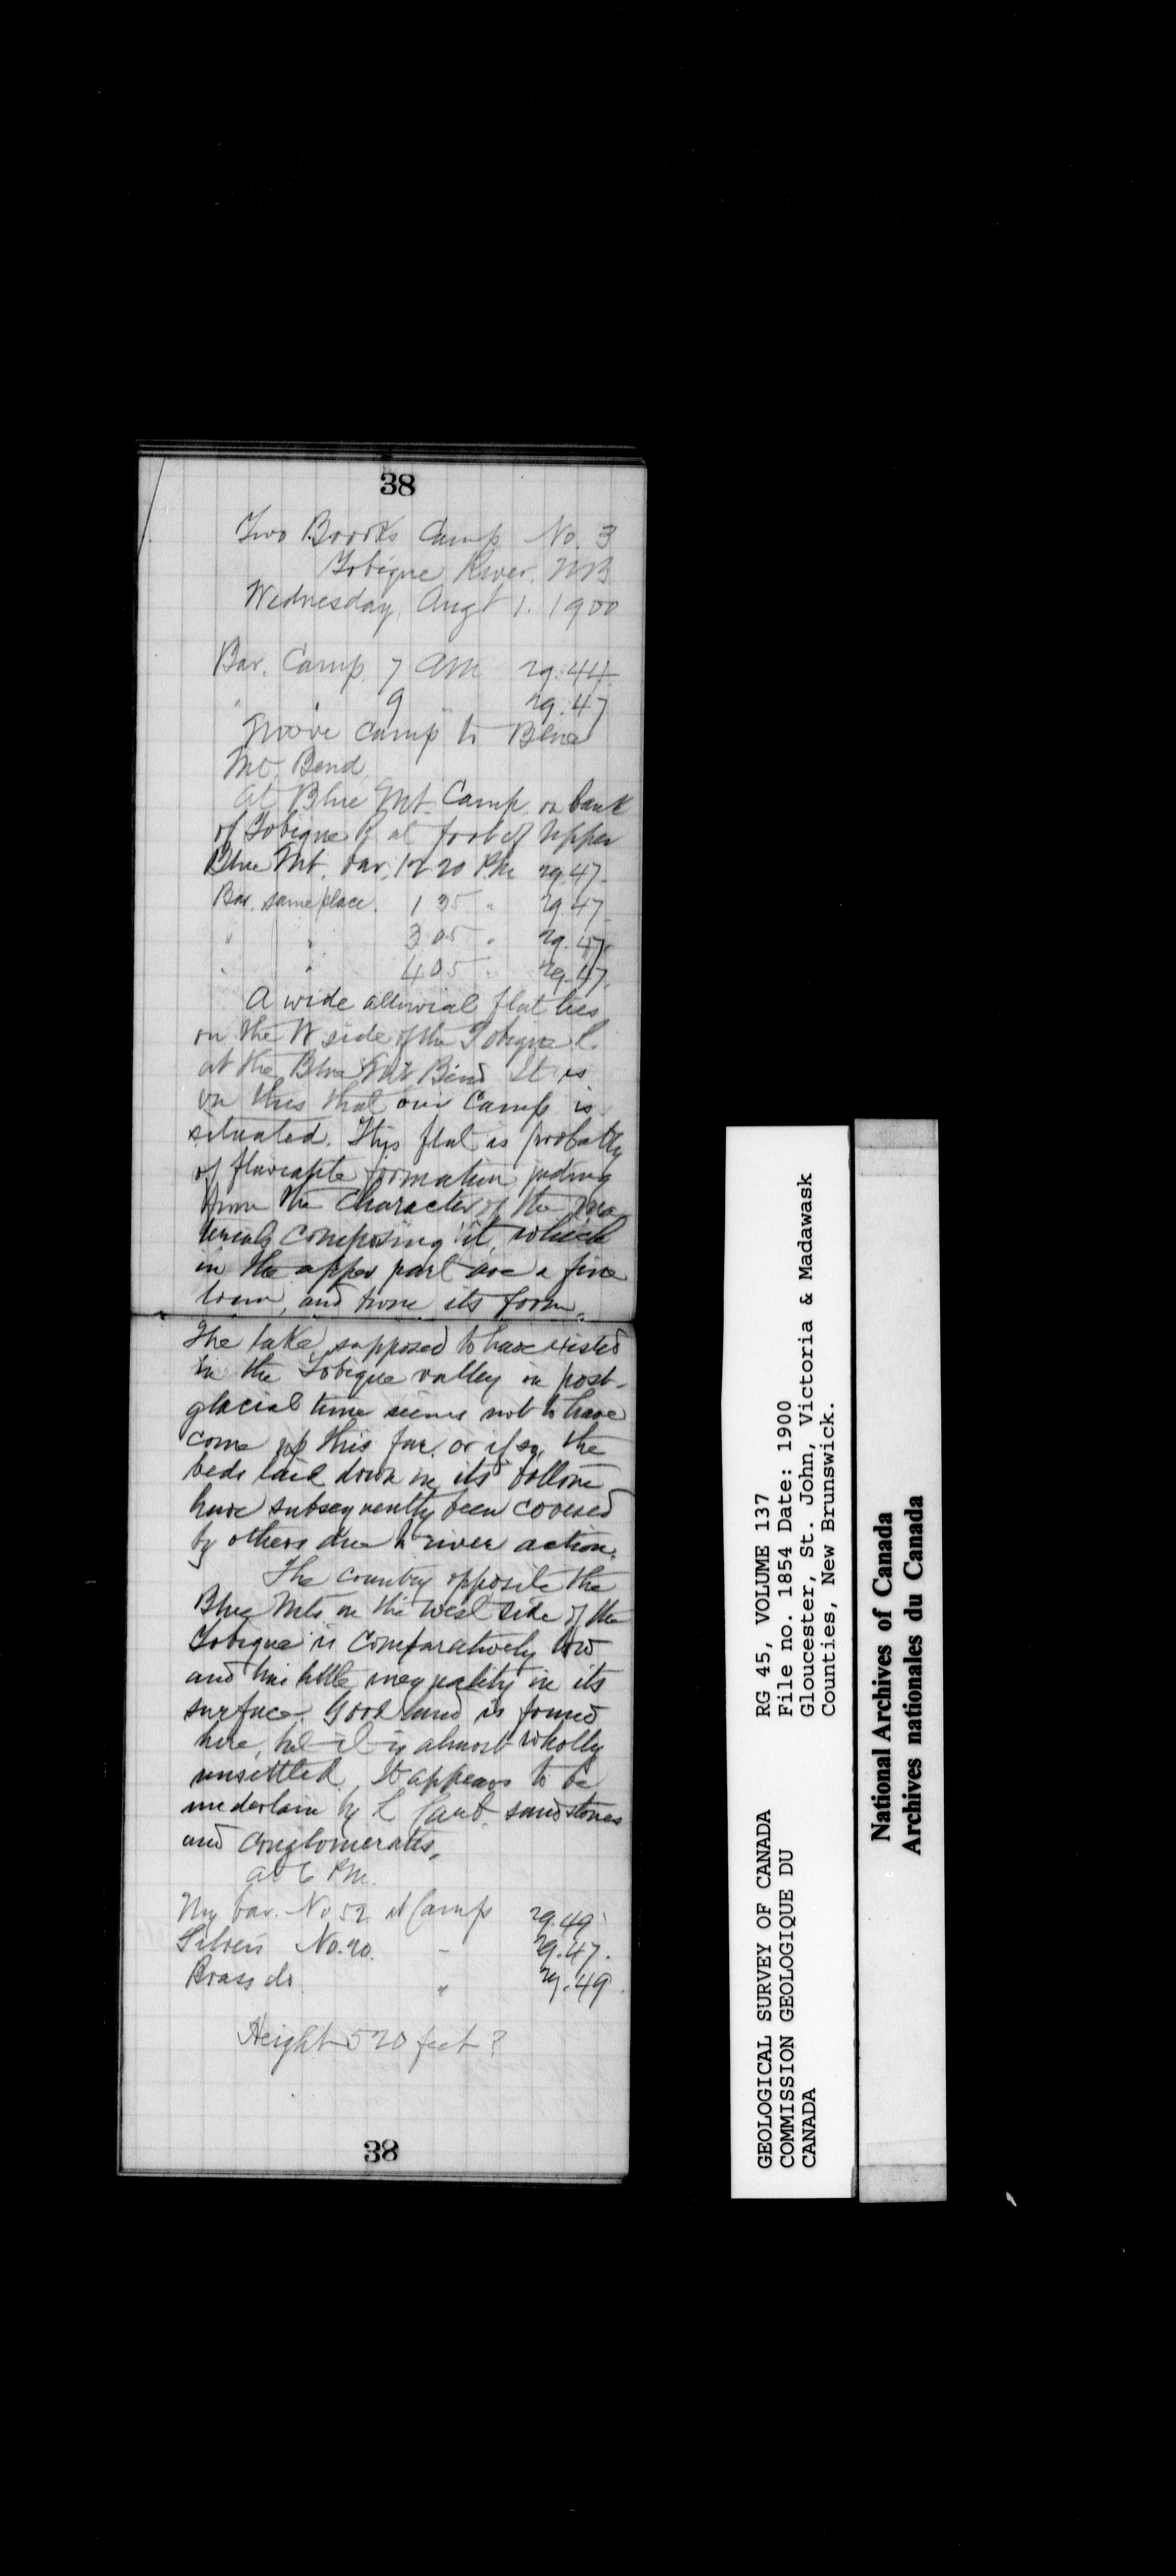 38
Two Brooks Camp No. 3
Tobique River. NB
Wednesday, Augt 1. 1900
Bar. Camp. 7 AM 29.44
" " 9 " 29.47
Move camp to Blue
Mt. Bend.
At Blue Mt. Camp. on bank
of Tobique R at foot of Upper
Blue Mt. bar. 12 20 PM 29.47
Bar. same place. 1 35 " 29.47
" " 3 05 " 29.47.
" " 4 05 " 29.47.
A wide alluvial flat lies
on the W side of the Tobique R.
at the Blue Mt Bend It is
on this that our Camp is
situated. This flat is probably
of fluviatile formation judging
from the character of the ma
terials composing it, which
in the upper part are a fine
loam, and from its form.
The lake supposed to have existed
in the Tobique valley in post-
glacial time seems not to have
come up this far. or if so, the
beds laid down in its bottom
have subsequently been covered
by others due to river action.
The country opposite the
Blue Mts. on the west side of the
Tobique is comparatively low
and has little inequality in its
surface. Good land is found
here, but it is almost wholly
unsettled. It appears to be
underlain by L Carb. sandstones
and conglomerates.
At 6 PM.
My bar. No 52. at Camp 29.49
No. 20. " 29.47.
Brass do " 29.49.
Height 520 feet?
38
GEOLOGICAL SURVEY OF CANADA RG 45, VOLUME 137
COMMISSION GEOLOGIQUE DU File no. 1854 Date: 1900
CANADA Gloucester, St. John, Victoria & Madawask
Counties, New Brunswick.
National Archives of Canada
Archives nationales du Canada